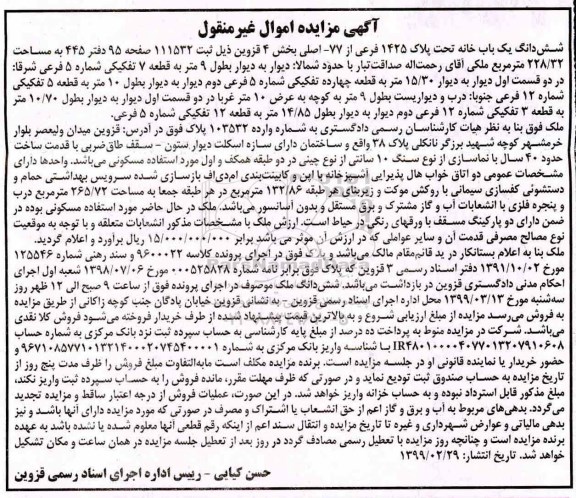 آگهی مزایده اموال غیرمنقول
شش‌دانگ یک باب خانه تحت پلاک ۱۴۲۵ فرعی از ۷۷- اصلی بخش ۴ قزوین ذیل ثبت ۱۱۱۵۳۲ صفحه ۹۵ دفتر ۴۴۵ به مساحت
۲۲۸/۳۲ مترمربع ملکی آقای رحمت‌اله صداقت‌تبار با حدود شمالا: دیوار به دیوار بطول ۹ متر به قطعه ۷ تفکیکی شماره ۵ فرعی شرقا:
در دو قسمت اول دیوار به دیوار ۱۵/۳۰ متر به قطعه چهارده تفکیکی شماره ۵ فرعی دوم دیوار به دیوار بطول ۱۰ متر به قطعه ۵ تفکیکی
شماره ۱۲ فرعی جنوبا: درب و دیواریست بطول ۹ متر به کوچه به عرض ۱۰ متر غربا در دو قسمت اول دیوار به دیوار بطول ۱۰/۷۰ متر
به قطعه ۳ تفکیکی شماره ۱۲ فرعی دوم دیوار به دیوار بطول ۱۴/۸۵ متر به قطعه ۱۲ تفکیکی شماره ۵ فرعی.
ملک فوق بنا به نظر هیات کارشناسان رسمی دادگستری به شماره وارده ۱۰۳۵۳۲ پلاک فوق در آدرس: قزوین میدان ولیعصر بلوار
خرمشهر کوچه شهید برزگر نانکلی پلاک ۳۸ واقع و ساختمان دارای سازه اسکلت دیوار ستون - سقف طاق‌ضربی با قدمت ساخت
حدود ۴۰ سال با نماسازی از نوع سنگ ۱۰ سانتی از نوع چینی در دو طبقه همکف و اول مورد استفاده مسکونی می‌باشد. واحدها دارای
مشخصات عمومی دو اتاق خواب هال پذیرایی آشپزخانه با اپن و کابینت‌بندی ام‌دی‌اف بازسازی شده سرویس بهداشتی حمام و
دستشوئی کفسازی سیمانی با روکش موکت و زیربنای هر طبقه ۱۳۲/۸۶ مترمربع در هر طبقه جمعا به مساحت ۲۶۵/۷۲ مترمربع درب
و پنجره فلزی با انشعابات آب و گاز مشترک و برق مستقل و بدون آسانسور می‌باشد. ملک در حال حاضر مورد استفاده مسکونی بوده در
ضمن دارای دو پارکینگ مسقف با ورقهای رنگی در حیاط است. ارزش ملک با مشخصات مذکور انشعابات متعلقه و با توجه به موقعیت
نوع مصالح مصرفی قدمت آن و سایر عواملی که در ارزش آن موثر می باشد برابر ۱۵/۰۰۰/۰۰۰/۰۰۰ ریال برآورد و اعلام گردید.
ملک بنا به اعلام بستانکار در ید قائم‌مقام مالک می‌باشد و پلاک فوق در اجرای پرونده کلاسه ۹۶۰۰۰۲۲ و سند رهنی شماره ۱۲۵۵۴۶
مورخ ۱۳۹۱/۱۰/۰۲ دفتر اسناد رسمی ۳ قزوین که پلاک فوق برابر نامه شماره ۰۰۰۵۲۵۸۲۸ مورخ ۱۳۹۸/۰۷/۰۶ شعبه اول اجرای
احکام مدنی دادگستری قزوین در بازداشت می‌باشد. شش‌دانگ ملک موصوف در اجرای پرونده فوق از ساعت ۹ صبح الی ۱۲ ظهر روز
سه‌شنبه مورخ ۱۳۹۹/۰۳/۱۳ محل اداره اجرای اسناد رسمی قزوین - به نشانی قزوین خیابان پادگان جنب کوچه زاکانی از طریق مزایده
به فروش می‌رسد مزایده از مبلغ ارزیابی شروع و به بالاترین قیمت پیشنهاد شده از طرف خریدار فروخته می‌شود فروش کلا نقدی
می‌باشد. شرکت در مزایده منوط به پرداخت ده درصد از مبلغ پایه کارشناسی به حساب سپرده ثبت نزد بانک مرکزی به شماره حساب
IR۴۸۰۱۰۰۰۰۴۰۷۷۰۱۳۲۰۷۹۱۰۶۰۸ با شناسه واریز بانک مرکزی به شماره ۹۶۷۱۰۸۵۷۷۱۰۱۳۲۱۴۰۰۰۲۰۷۴۵۴۰۰۰۰۱ و
حضور خریدار یا نماینده قانونی او در جلسه مزایده است. برنده مزایده مکلف است مابه‌التفاوت مبلغ فروش را ظرف مدت پنج روز از
تاریخ مزایده به حساب صندوق ثبت تودیع نماید و در صورتی که ظرف مهلت مقرر، مانده فروش را به حساب سپرده ثبت واریز نکند،
مبلغ مذکور قابل استرداد نبوده و به حساب خزانه واریز خواهد شد. در این صورت، عملیات فروش از درجه اعتبار ساقط و مزایده تجدید
می‌گردد. بدهی‌های مربوط به آب و برق و گاز اعم از حق انشعاب یا اشتراک و مصرف در صورتی که مورد مزایده دارای آنها باشد و نیز
بدهی مالیاتی و عوارض شهرداری و غیره تا تاریخ مزایده و انتقال سند اعم از اینکه رقم قطعی آنها معلوم شده یا نشده باشد به عهده
برنده مزایده است و چنانچه روز مزایده با تعطیل رسمی مصادف گردد در روز بعد از تعطیل جلسه مزایده در همان ساعت و مکان تشکیل
خواهد شد. تاریخ انتشار: ۱۳۹۹/۰۲/۲۹
حسن کیایی - رییس اداره اجرای اسناد رسمی قزوین